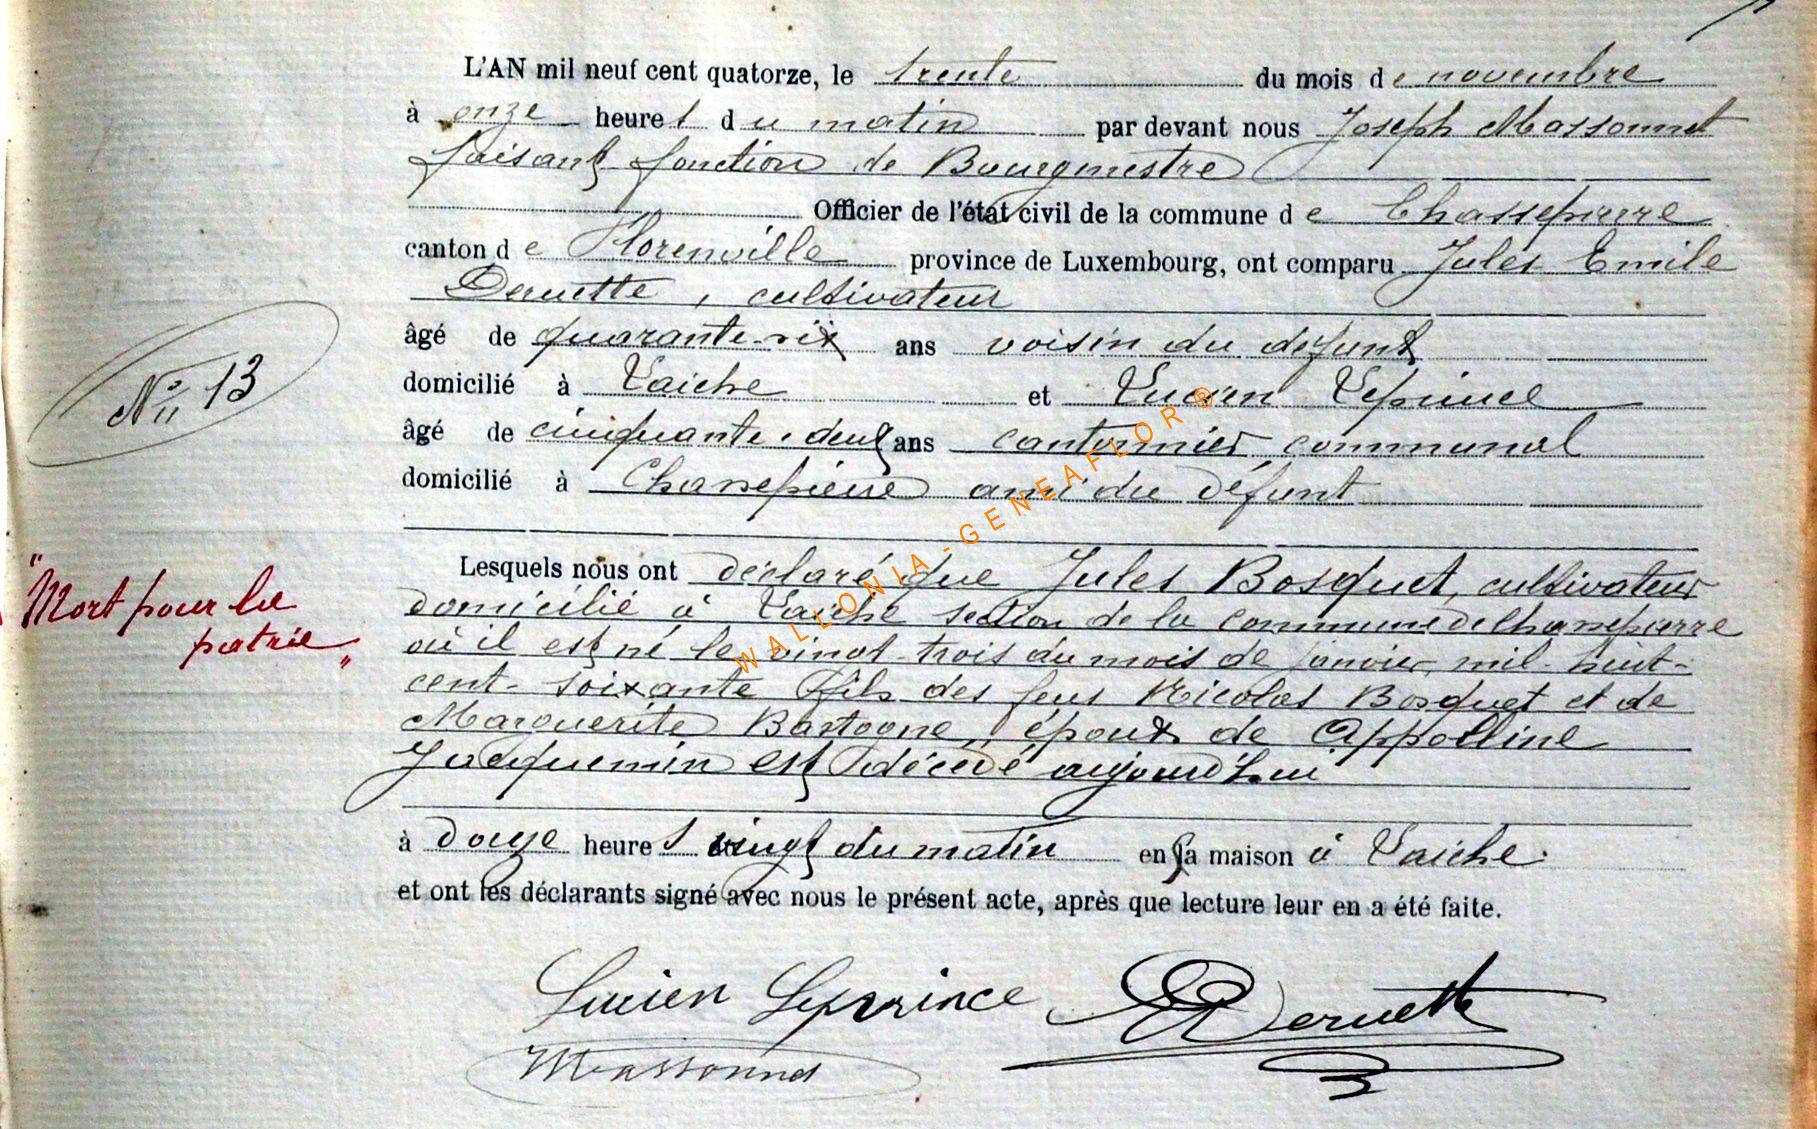 L'AN mil neuf cent quatorze, le trente du mois de novembre
à onze heures du matin par devant nous Joseph Massonnet
faisant fonction de Bourgmestre
Officier de l'état civil de la commune de Chassepierre
canton de Florenville province de Luxembourg, ont comparu Jules Emile
Dernette, cultivateur
âgé de quarante-six ans voisin du défunt
domicilié à Laiche et Lucien Leprince
âgé de cinquante-deux ans cantonnier communal
domicilié à Chassepierre ami du défunt
N° 13
Lesquels nous ont déclaré que Jules Bosquet, cultivateur
domicilié à Laiche section de la commune de Chassepierre
où il est né le vingt-trois du mois de janvier mil-huit-
cent-soixante fils des feus Nicolas Bosquet et de
Marguerite Bastogne, époux de Appolline
Jacquemin est décédé aujourd'hui
"Mort pour la
patrie"
à douze heures vingt du matin en sa maison à Laiche.
et ont les déclarants signé avec nous le présent acte, après que lecture leur en a été faite.
Lucien Leprince Dernette
Massonnet
WALLONIA-GENEAFLOR ®